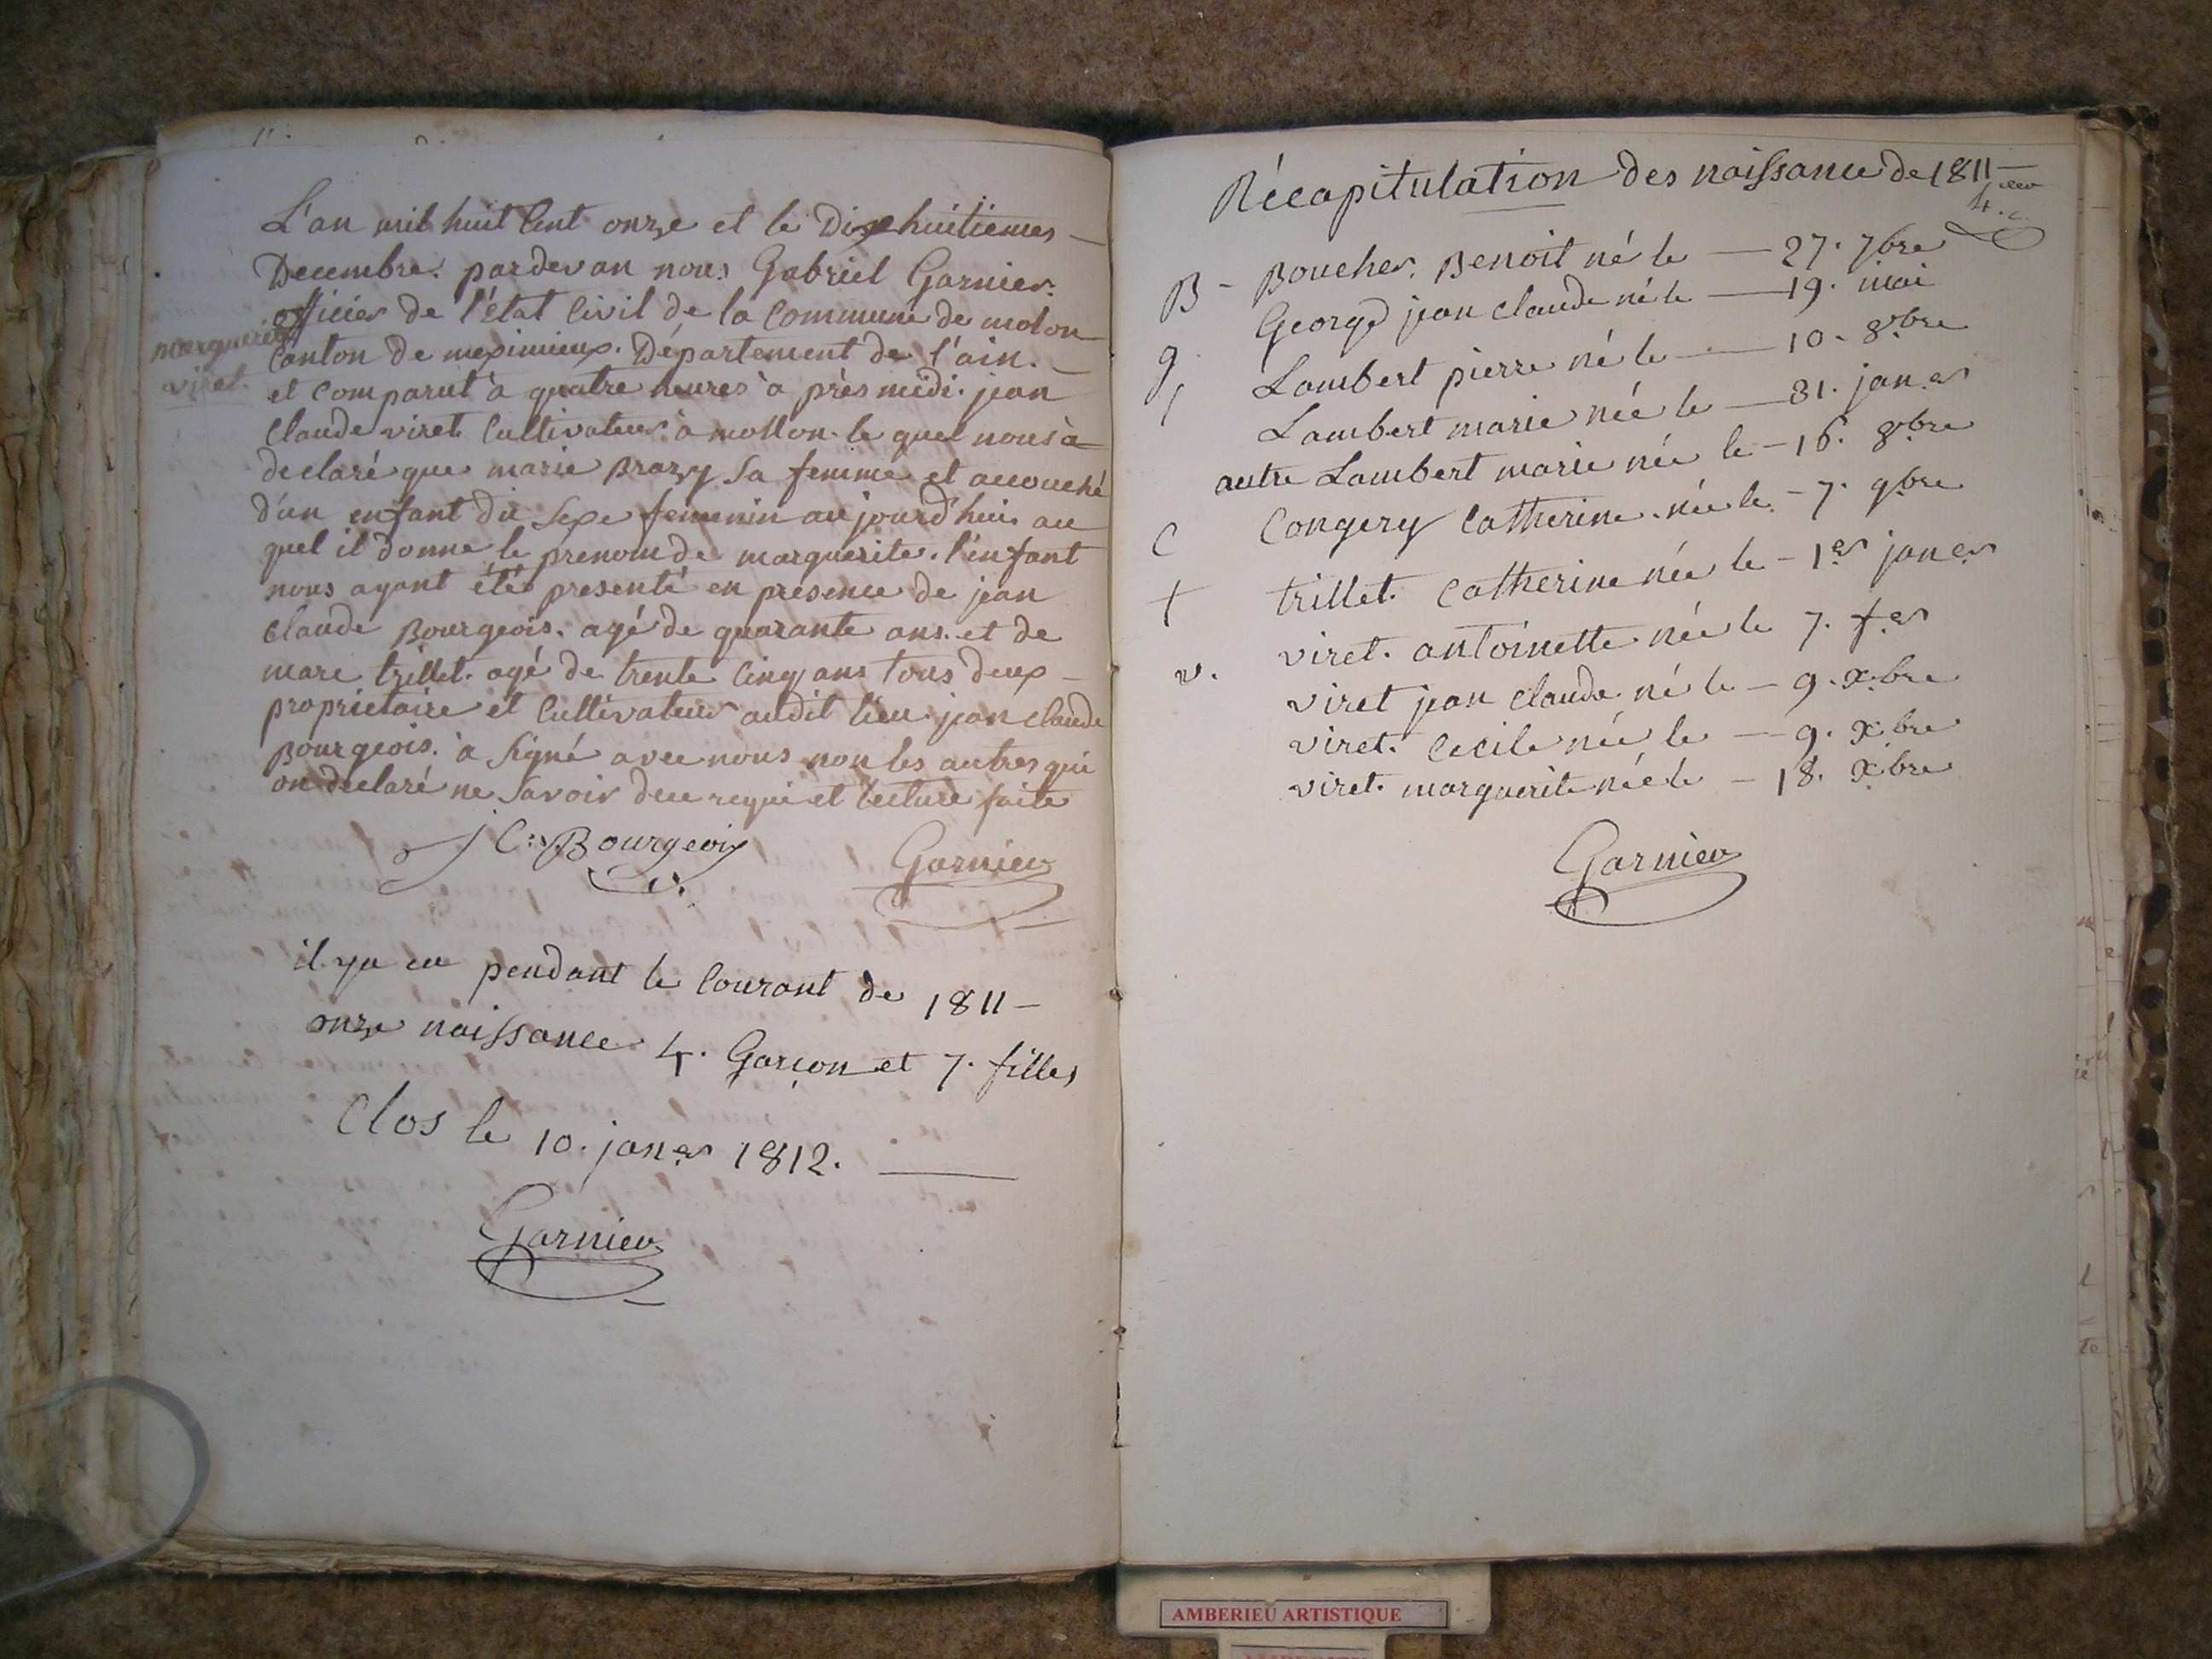 L'an mil huit Cent onze et le Dixehuitiemes
Decembre. pardevan nous Gabriel Garnier.
officier de l'état Civil de la Commune de molon
marguerite
viret
Canton de meximieux. Département de l'ain.
et Comparut à quatre heures à près midi. jean
Claude viret Cultivateur à mollon le quel nous à
declaré que marie Brazy Sa femme et acouché
d'un enfant du Sexe femenin aujourd'hui au
quel il donne le prenom de marguerite. l'enfant
nous ayant été presenté en presence de jean
Claude Bourgeois. agé de quarante ans. et de
marc trillet. agé de trente Cinq ans tous deux
proprietaire et Cultivateur audit lieu jean claude
Bourgeois. à Signé avec nous non les autres qui
on declaré ne Savoir dece requi et lecture faite
J C: Bourgeois
Garnier
il ya eu pendant le Courant de 1811 —
onze naissance 4. Garçon et 7. filles
Clos le 10. janer 1812.
Garnier
Récapitulation des naissance de 1811 —
B - Boucher. Benoit né le — 27. 7bre
g. George jean claude né le — 19. mai
l Lambert pierre né le — 10. 8bre
Lambert marie née le — 31. janer
autre Lambert marie née le — 16. 8bre
C Congery Catherine née le - 7. 9bre
t trillet. Catherine née le - 1er janer
v. viret. antoinette née le 7. fer
viret jean claude né le — 9. xbre
viret. Cecile née le — 9. xbre
viret. marguerite née le — 18. xbre
Garnier
AMBERIEU ARTISTIQUE